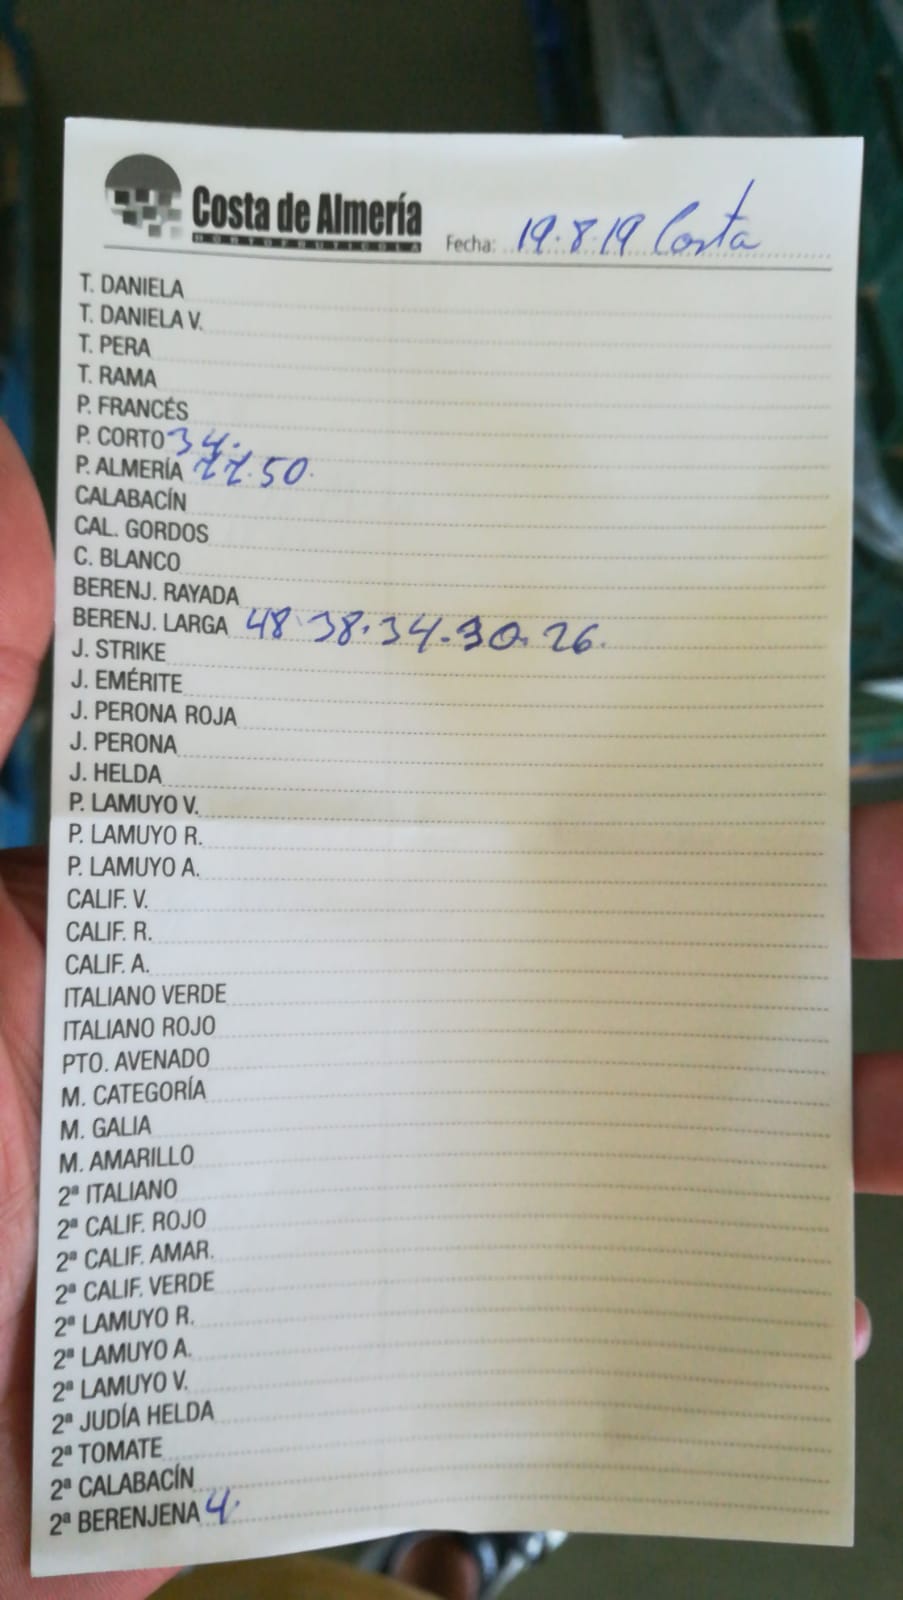 Costa de Almería
HORTOFRUTICOLA
Fecha: 19.8.19 Costa
T. DANIELA
T. DANIELA V.
T. PERA
T. RAMA
P. FRANCÉS
P. CORTO 34.
P. ALMERÍA 77.50.
CALABACÍN
CAL. GORDOS
C. BLANCO
BERENJ. RAYADA
BERENJ. LARGA 48.38.34.30.26.
J. STRIKE
J. EMÉRITE
J. PERONA ROJA
J. PERONA
J. HELDA
P. LAMUYO V.
P. LAMUYO R.
P. LAMUYO A.
CALIF. V.
CALIF. R.
CALIF. A.
ITALIANO VERDE
ITALIANO ROJO
PTO. AVENADO
M. CATEGORÍA
M. GALIA
M. AMARILLO
2ª ITALIANO
2ª CALIF. ROJO
2ª CALIF. AMAR.
2ª CALIF. VERDE
2ª LAMUYO R.
2ª LAMUYO A.
2ª LAMUYO V.
2ª JUDÍA HELDA
2ª TOMATE
2ª CALABACÍN
2ª BERENJENA 4.